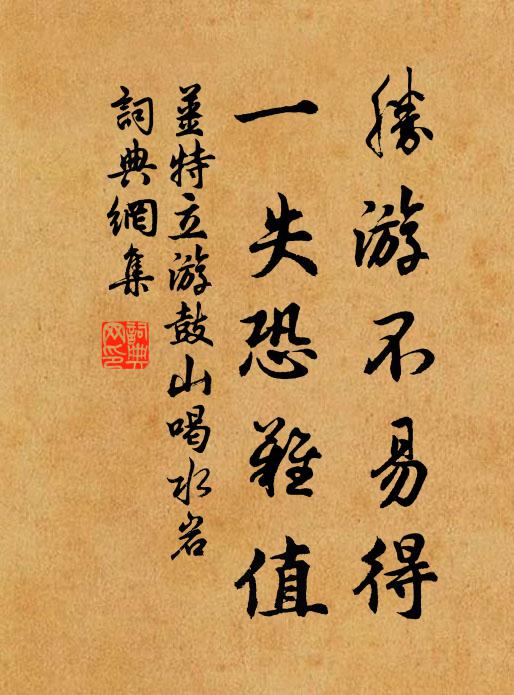 勝游不易得
一失恐難值
姜特立游鼓山喝水岩
詞典網集
詞典
网印